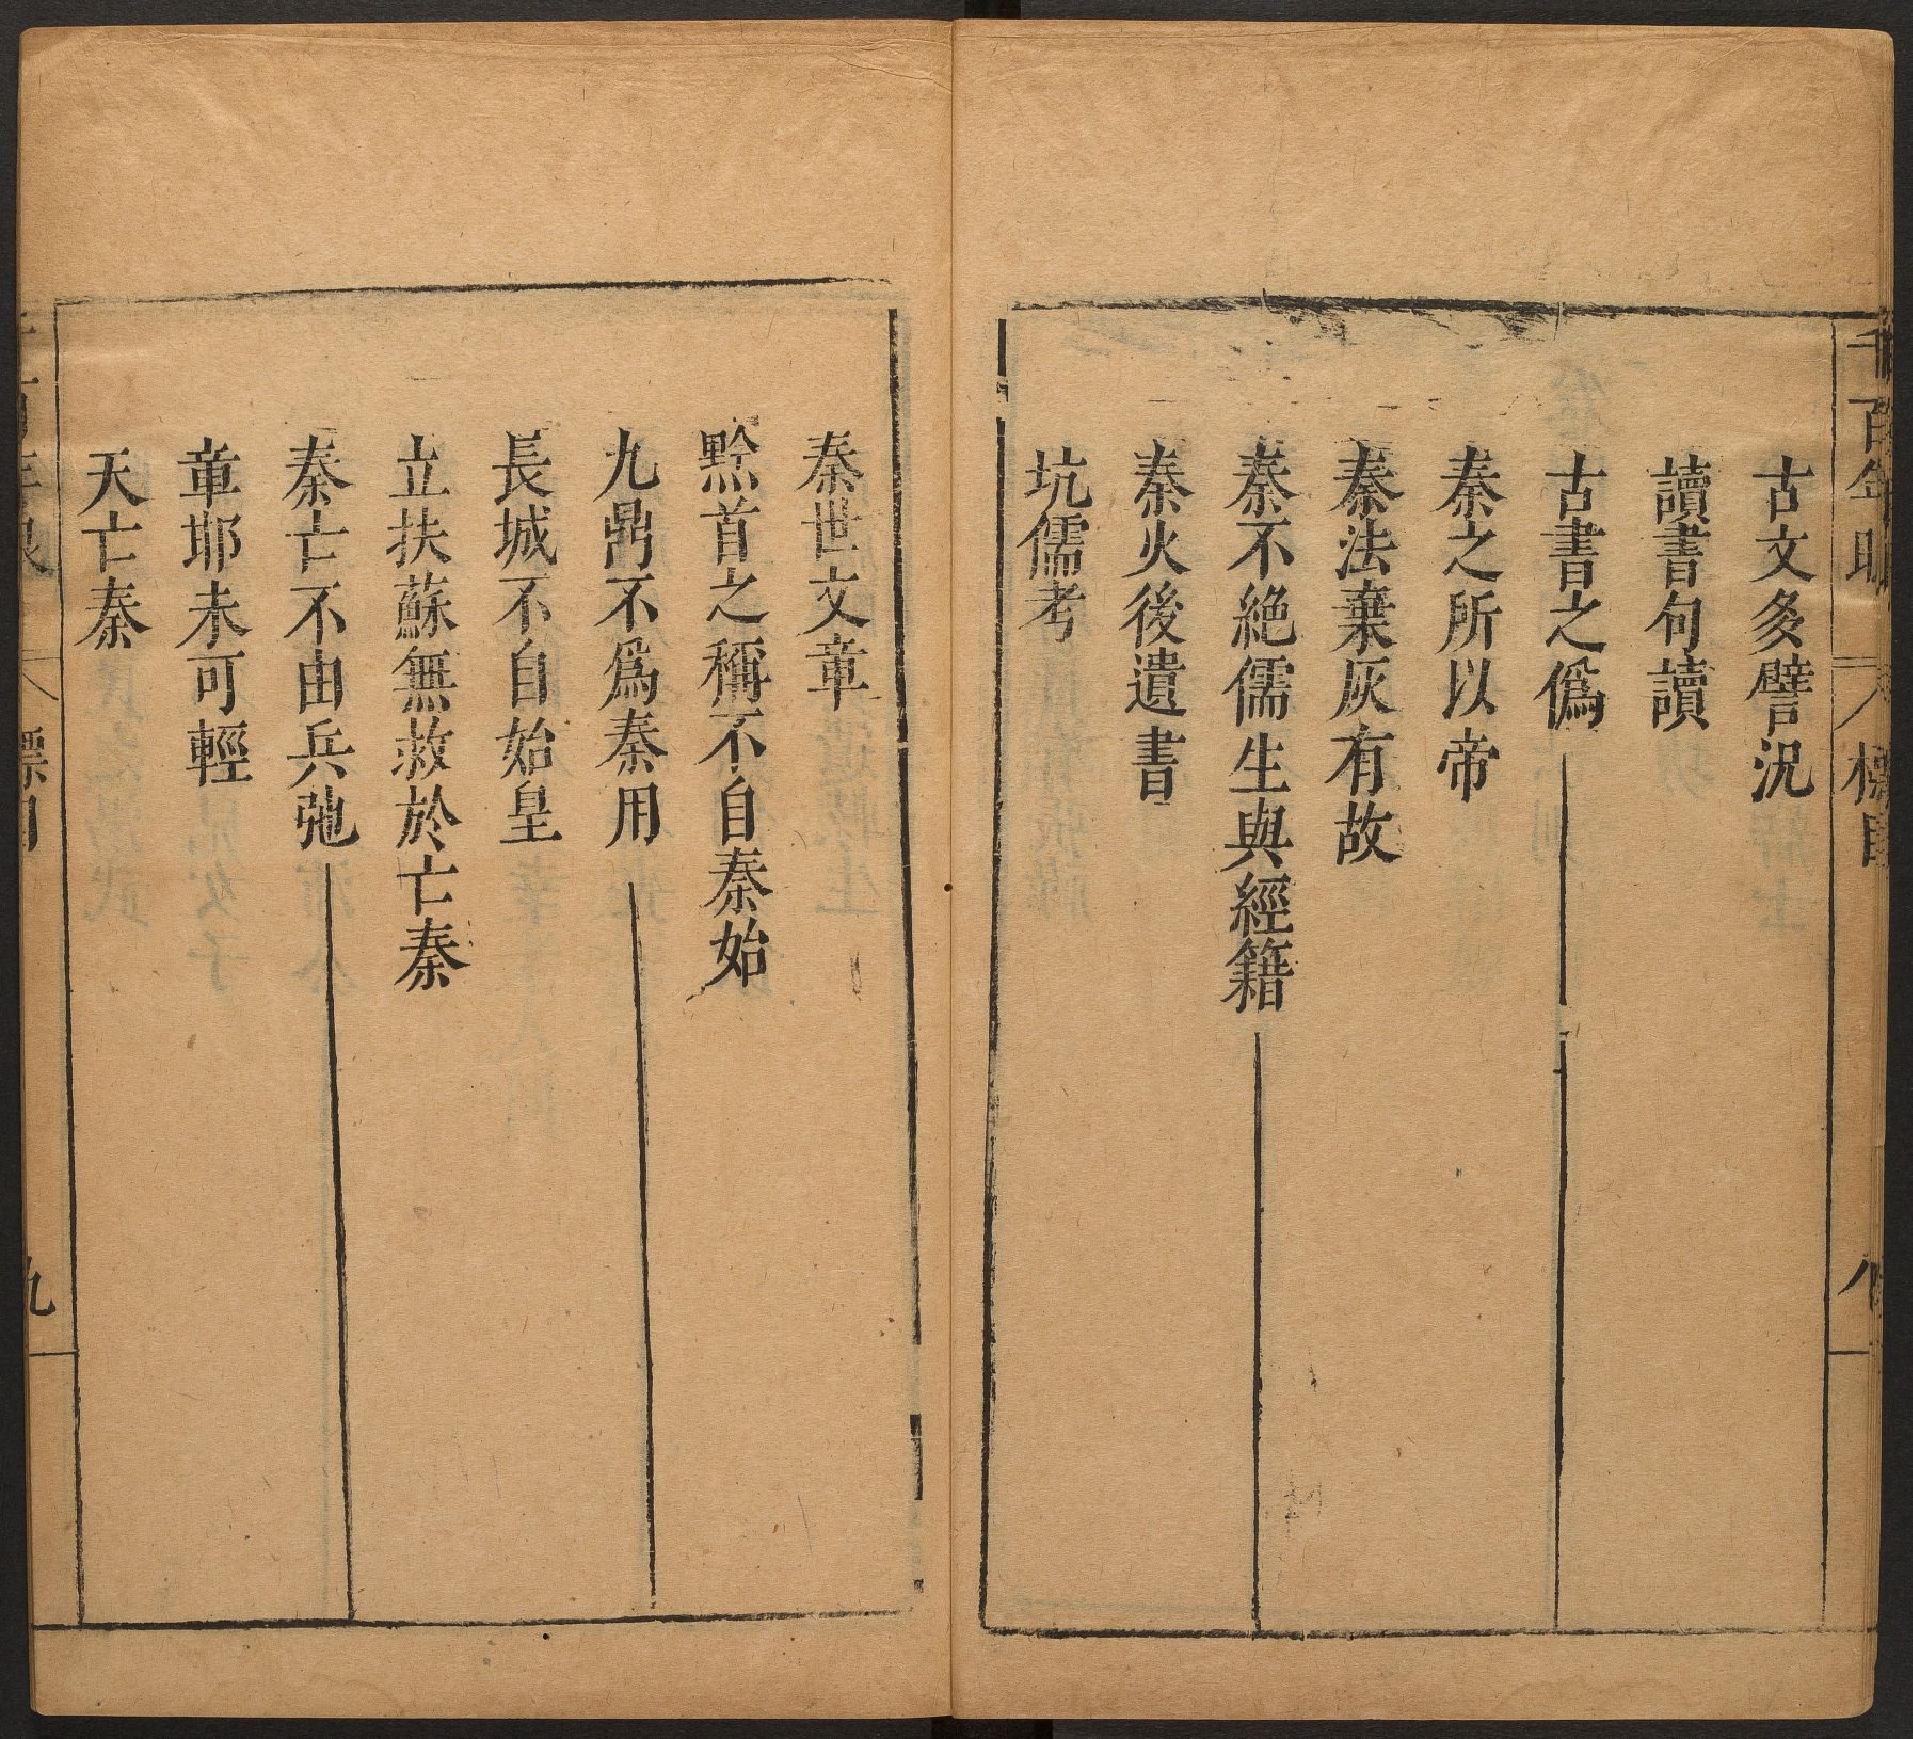 千百年眼 標目 八
古文多譬況
讀書句讀
古書之僞
秦之所以帝
秦法棄灰有故
秦不絶儒生與經籍
秦火後遺書
坑儒考
秦世文章
黔首之稱不自秦始
九鼎不爲秦用
長城不自始皇
立扶蘇無救於亡秦
秦亡不由兵弛
章邯未可輕
天亡秦
千百年眼 標目 九